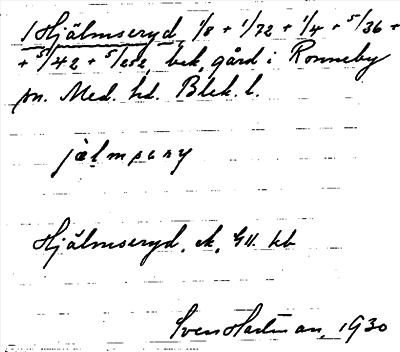 1 Hjälmseryd, 1/8 + 1/72 + 1/4 + 5/36 +
+ 5/42 + 5/252, bek. gård i Ronneby
sn. Med. hd. Blek. l.
Hjälmseryd. ek. GU. kb
Sven Hartman, 1930